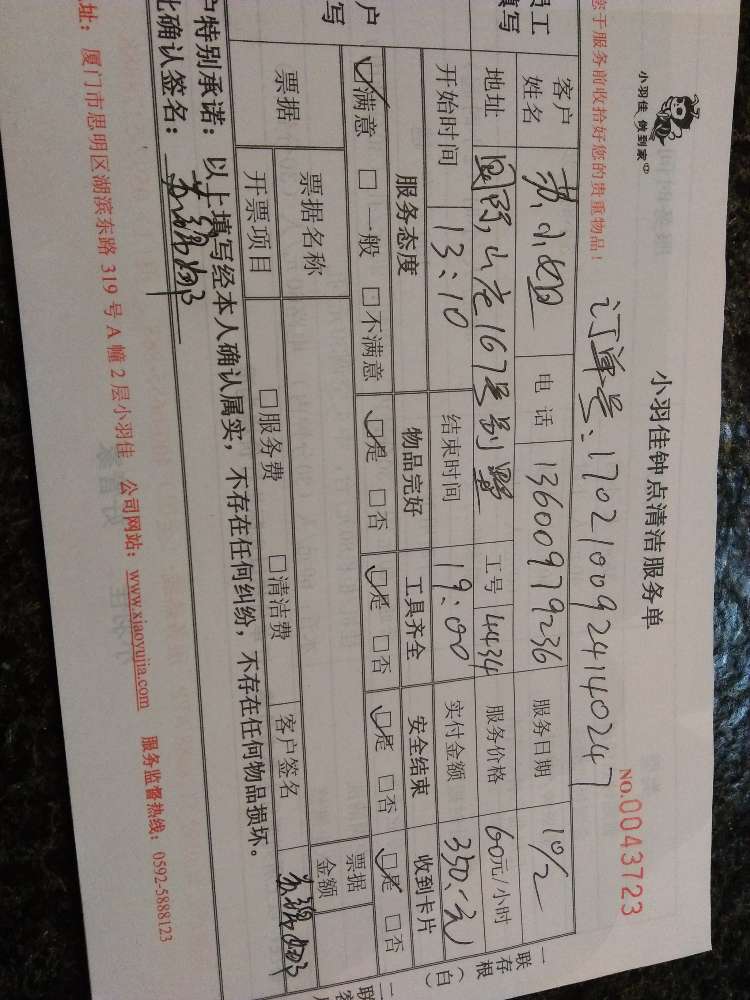 小羽佳 做到家
小羽佳钟点清洁服务单
NO.0043723
您于服务前收拾好您的贵重物品!
订单号:17021009241402​47
客户姓名 苏小姐 电话 13600979236 服务日期 10/2
地址 国际山庄167号别墅 工号 4434 服务价格 60元/小时
开始时间 13:10 结束时间 19:00 实付金额 350.元
服务态度 物品完好 工具齐全 安全结束 收到卡片
满意 □ 一般 □不满意 □是 □否 □是 □否 □是 □否 □是 □否
票据 票据名称 票据金额
开票项目 □服务费 □清洁费 客户签名
户特别承诺:以上填写经本人确认属实,不存在任何纠纷,不存在任何物品损坏。
此确认签名:
址:厦门市思明区湖滨东路 319 号 A 幢 2 层小羽佳 公司网站:www.xiaoyujia.com 服务监督热线:0592-5888123
员工
填写
户
写
一联
存根
(白)
二联